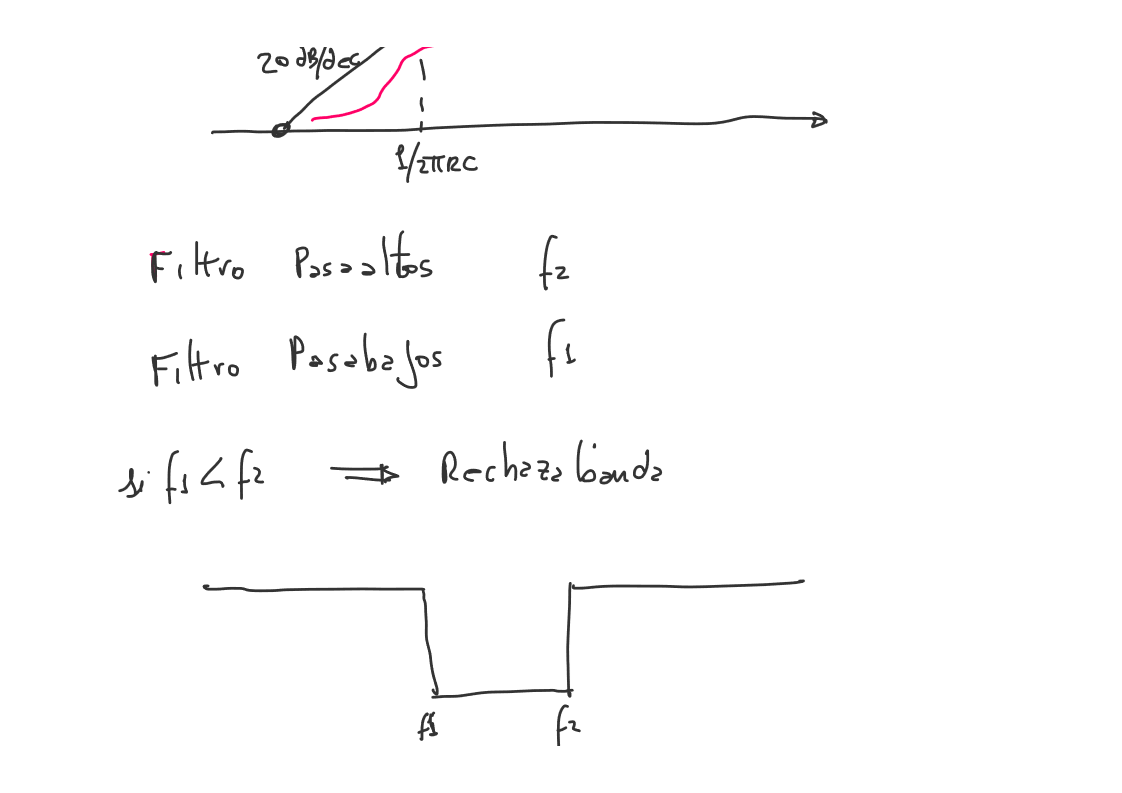 20 dB/dec
1/2πRC
Filtro Pasaaltos f2
Filtro Pasabajos f1
si f1 < f2 ⇒ Rechaza banda
f1 f2